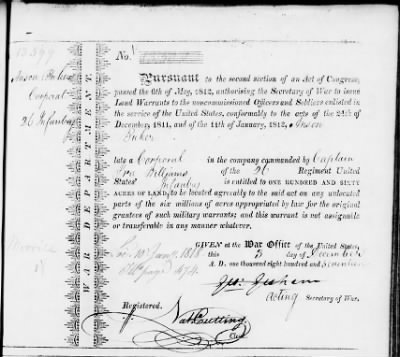 No.
Pursuant to the second section of an Act of Congress,
passed the 6th of May, 1812, authorising the Secretary of War to issue
Land Warrants to the noncommissioned Officers and Soldiers enlisted in
the service of the United States, conformably to the acts of the 24th of
December, 1811, and of the 11th of January, 1812, Anson
late a Corporal in the company commanded by Captain
Ira Williams of the 26 Regiment United
States' Infantry is entitled to ONE HUNDRED AND SIXTY
ACRES OF LAND, to be located agreeably to the said act on any unlocated
parts of the six millions of acres appropriated by law for the original
grantees of such military warrants; and this warrant is not assignable
or transferable in any manner whatever.
GIVEN at the War Office of the United States,
this 3 day of December
A. D. one thousand eight hundred and
Acting Secretary of War.
Registered.
Nath Cutting
Clerk
WAR DEPARTMENT.
Anson
Corporal
26 Infantry